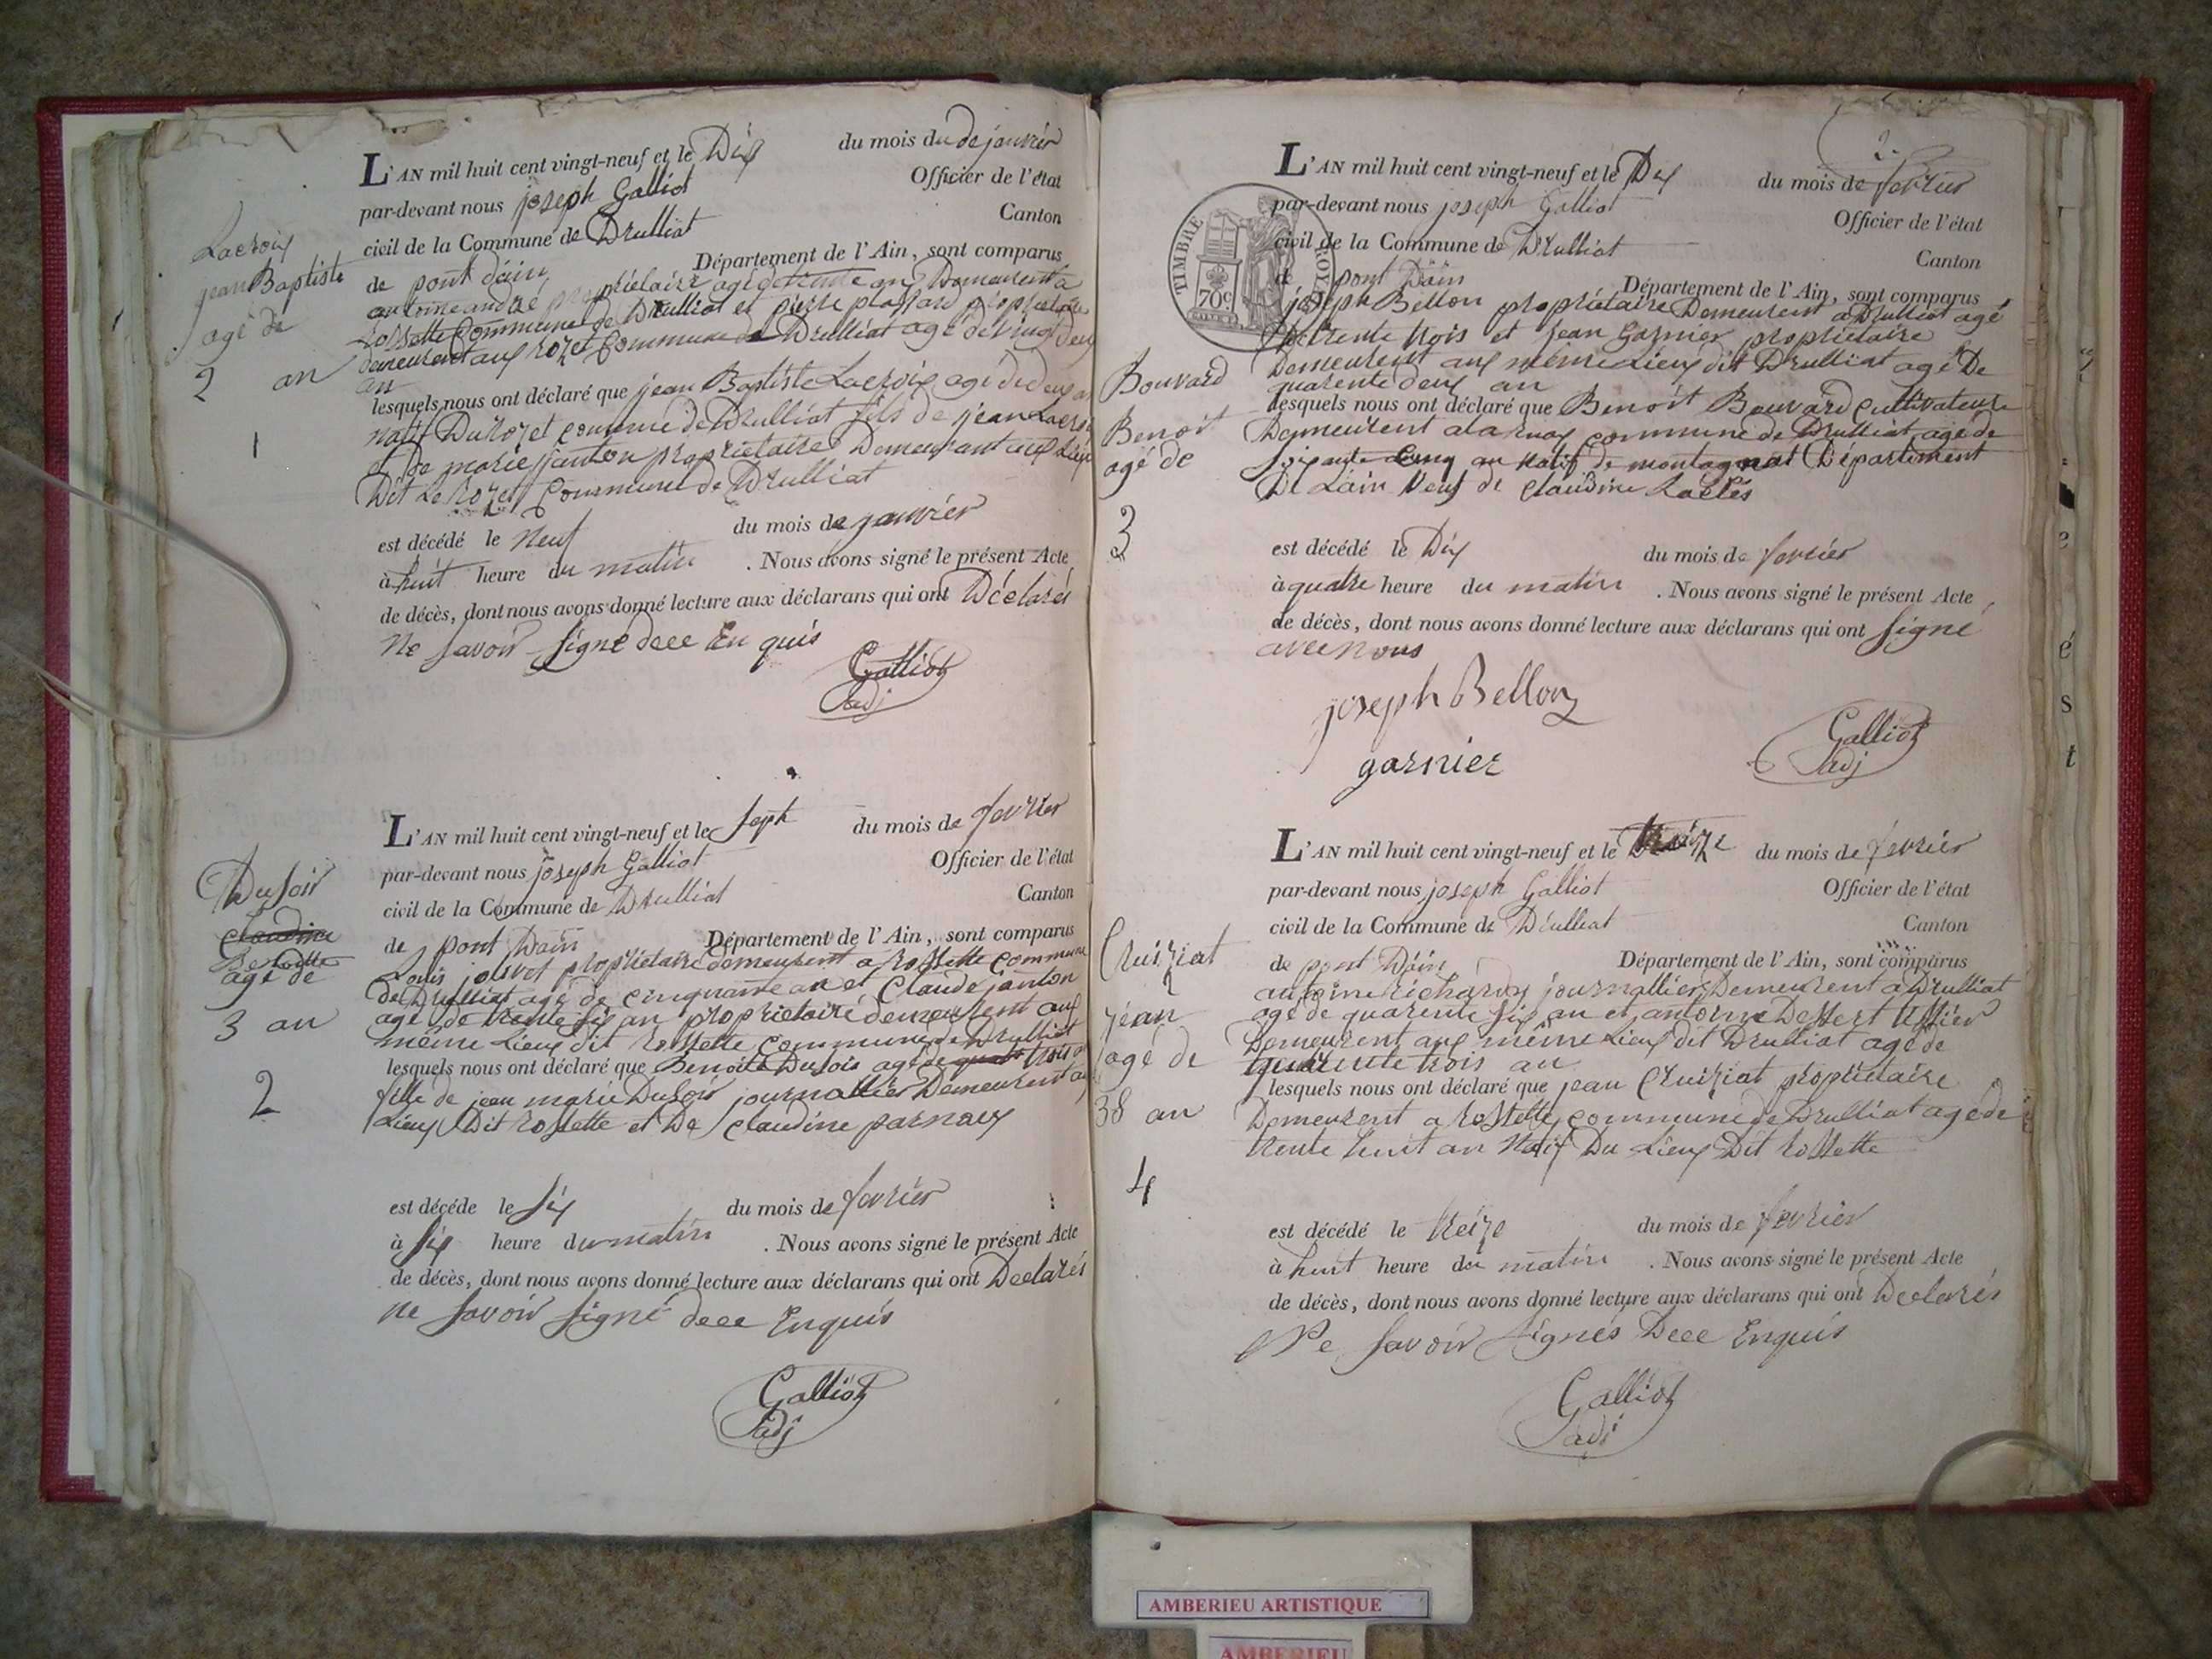 L'AN mil huit cent vingt-neuf et le Dix du mois du de janvier
par-devant nous joseph Galliot Officier de l'état
civil de la Commune de Drulliat Canton
de pont dain Département de l'Ain, sont comparus
antoine andré propriétaire agé de trente an Demeurent a
rossette Commune de Drulliat et pierre plassard propriétaire
demeurent aux rozet Commune de Drulliat agé de vingt deux
an
lesquels nous ont déclaré que jean Baptiste Lacroix agé de deux an
natif Du rozet commune de Drulliat fils de jean Lacroix
et de marie janton propriétaire Demeurant aux Lieux
Dit Le rozet Commune de Drulliat
est décédé le Neuf du mois de janvier
à huit heure du matin . Nous avons signé le présent Acte
de décès, dont nous avons donné lecture aux déclarans qui ont Déclarés
Ne Savoir Signé dece En quis
Galliot
adj
Lacroix
jean Baptiste
agé de
2 an
1
L'AN mil huit cent vingt-neuf et le Sept du mois de fevrier
par-devant nous joseph Galliot Officier de l'état
civil de la Commune de Drulliat Canton
de pont Dain Département de l'Ain, sont comparus
Louis jolivot propriétaire demeurent a rossette commune
de Drulliat agé de cinquante an et Claude janton
agé de trente six an propriétaire demeurent aux
même Lieux dit rossette commune de Drulliat
lesquels nous ont déclaré que Benoite Dusoir agé de trois an
fille de jean marie Dusoir journallier Demeurent au
Lieux Dit rossette et De Claudine parnoux
est décédé le Six du mois de fevrier
à Six heure du matin . Nous avons signé le présent Acte
de décès, dont nous avons donné lecture aux déclarans qui ont Declarés
ne Savoir Signé dece Enquis
Galliot
adj
Dusoir
Claudine
Benoitte
agé de
3 an
2
2
L'AN mil huit cent vingt-neuf et le Dix du mois de fevrier
par-devant nous joseph Galliot Officier de l'état
civil de la Commune de Drulliat Canton
de pont Dain Département de l'Ain, sont comparus
joseph Bellon propriétaire Demeurent a Drulliat agé
de trente trois et jean Garnier propriétaire
Demeurent aux même Lieux dit Drulliat agé De
quarente deux an
lesquels nous ont déclaré que Benoit Bouvard Cultivateure
Demeurent a commune de Drulliat agé de
Soixante Cinq an Natif de montagnat Département
De Lain Veuf de Claudine
est décédé le Dix du mois de fevrier
à quatre heure du matin . Nous avons signé le présent Acte
de décès, dont nous avons donné lecture aux déclarans qui ont Signé
avec nous
joseph Bellon
garnier
Galliot
adj
TIMBRE ROYAL
70c
Bouvard
Benoit
agé de
3
L'AN mil huit cent vingt-neuf et le treize du mois de fevrier
par-devant nous joseph Galliot Officier de l'état
civil de la Commune de Drulliat Canton
de pont Dain Département de l'Ain, sont comparus
antoine richard journallier Demeurent a Drulliat
agé de quarente Six an et antoine Dessert
Demeurent aux même Lieux dit Drulliat agé de
quarente trois an
lesquels nous ont déclaré que jean Cruiziat propriétaire
Demeurent a rossette commune de Drulliat agé de
trente huit an Natif Du Lieux Dit rossette
est décédé le treize du mois de fevrier
à huit heure du matin . Nous avons signé le présent Acte
de décès, dont nous avons donné lecture aux déclarans qui ont Declarés
Ne Savoir Signés Dece Enquis
Galliot
adj
Cruiziat
jean
agé de
38 an
4
AMBERIEU ARTISTIQUE
AMBERIEU